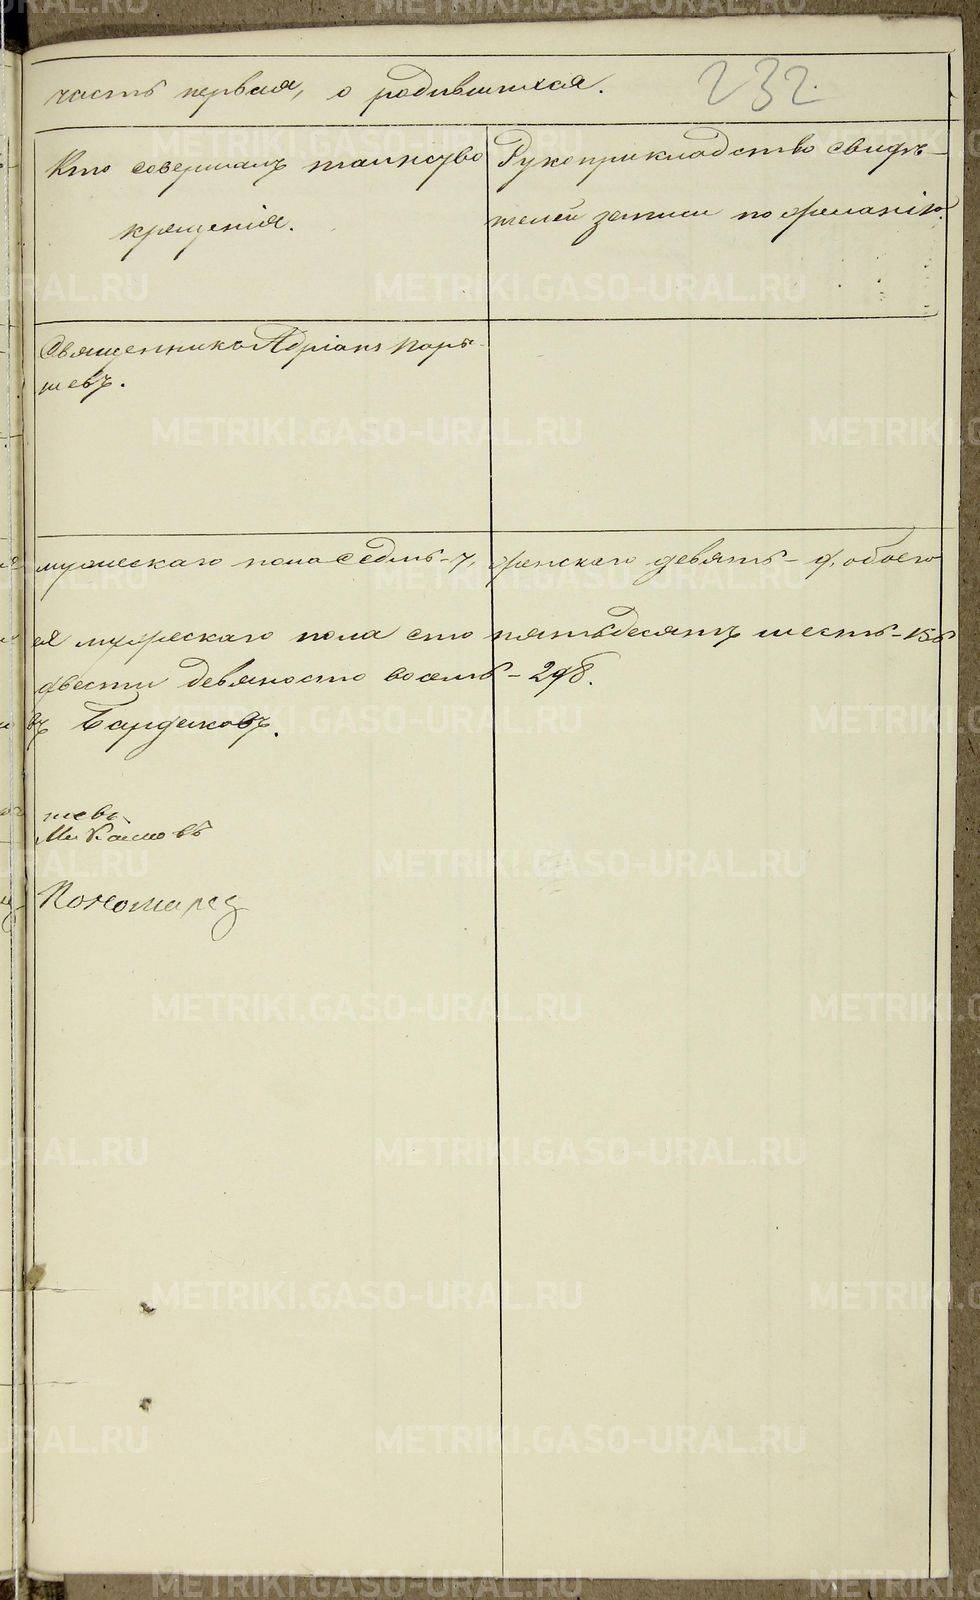 часть первая, о родившихся. 232.
Кто совершалъ таинство
крещенія.
Рукоприкладство свидѣ-
телей записи по желанію.
Священникъ Адріанъ Пары-
шевъ.
мужескаго пола седмь - 7, женскаго девять - 9, обоего
ея мужескаго пола сто пятьдесятъ шесть - 156
двести девяносто восемь - 298.
въ
шевъ
Пономарев
METRIKI.GASO-URAL.RU